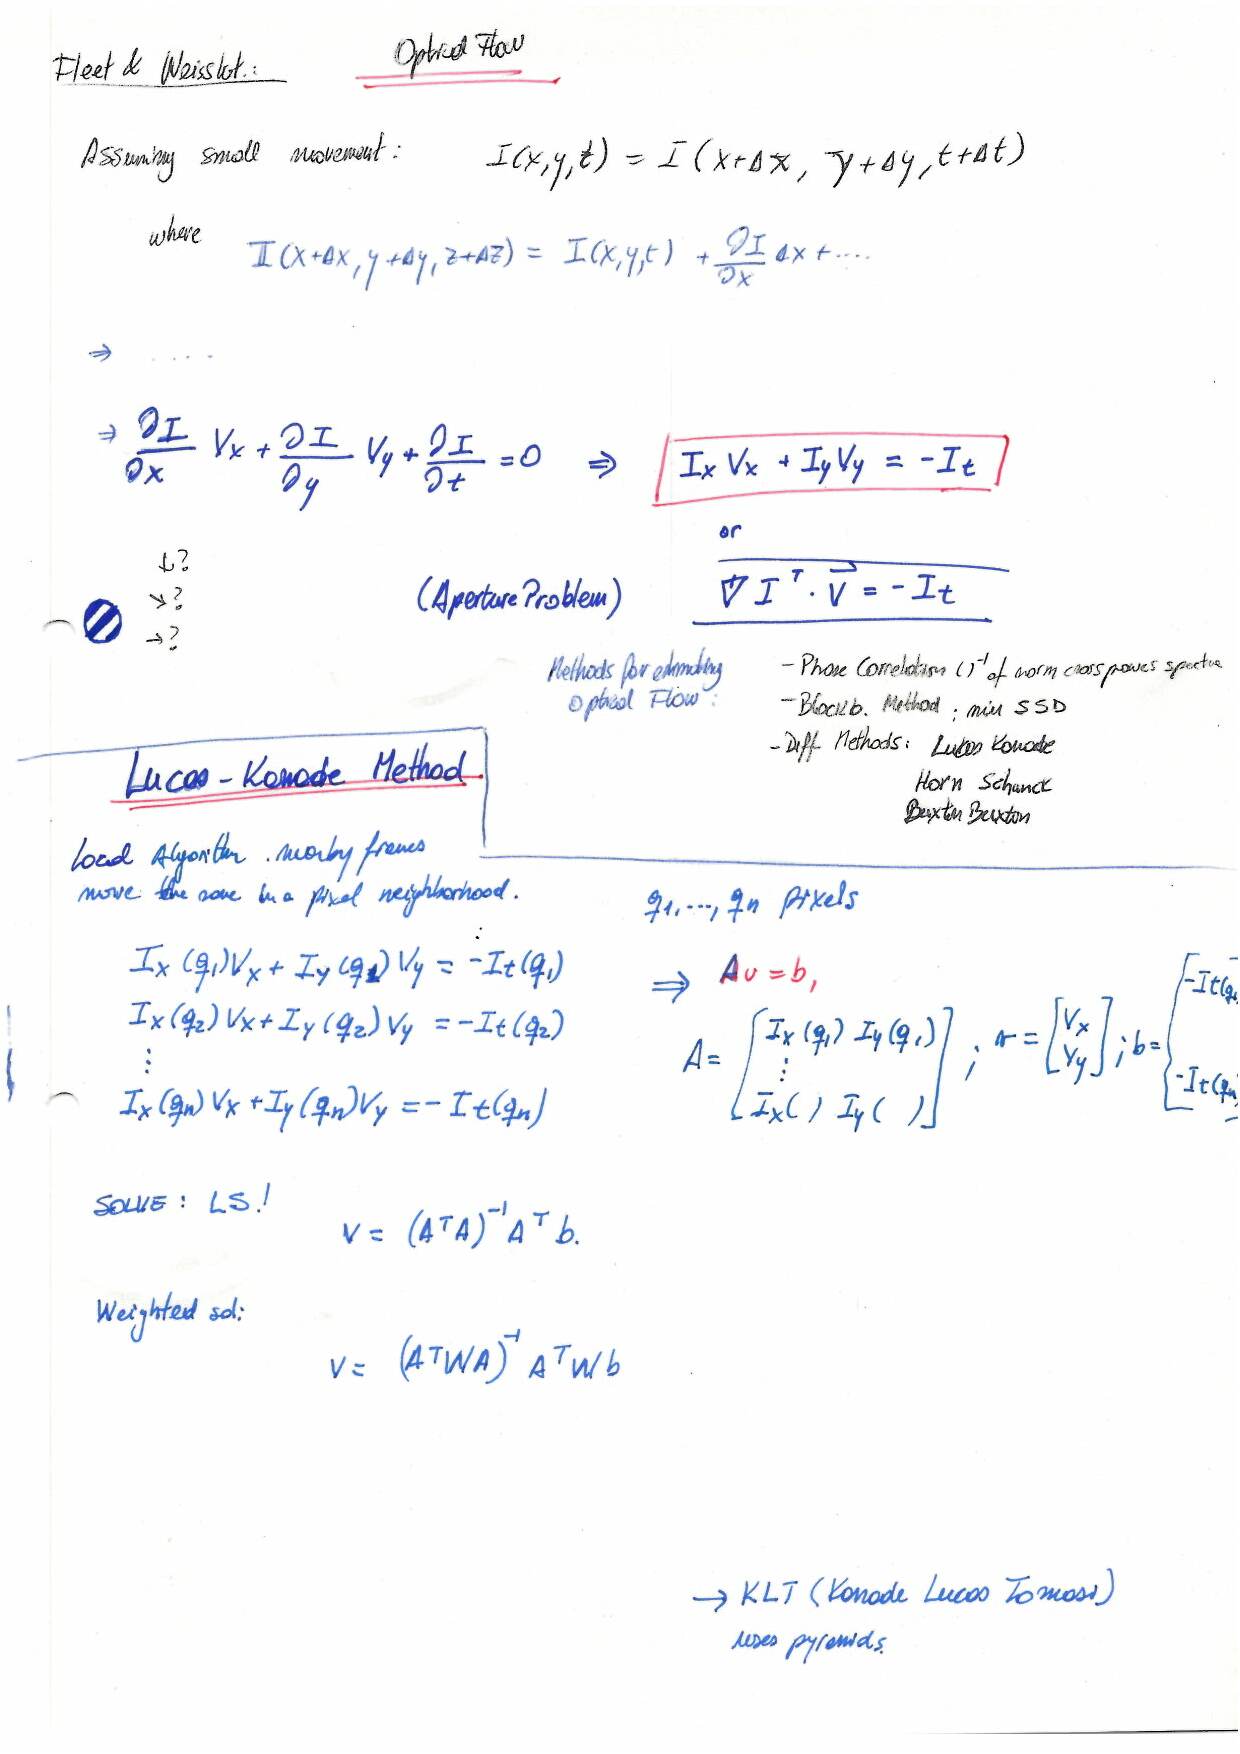 Optical Flow
Fleet & Weisslot.:
Assuming small movement: I(x,y,t) = I(x+Δx, y+Δy, t+Δt)
where I(x+Δx, y+Δy, z+Δz) = I(x,y,t) + ∂I/∂x Δx + ....
⇒ ....
⇒ ∂I/∂x Vx + ∂I/∂y Vy + ∂I/∂t = 0 ⇒ Ix Vx + Iy Vy = -It
or
(Aperture Problem) ∇I^T · V⃗ = -It
↓?
↘?
→?
Methods for estimating
Optical Flow:
- Phase Correlation ()^-1 of norm cross power spectra
- Blockb. Method: min SSD
- Diff Methods: Lucas Kanade
Horn Schunck
Buxton Buxton
Lucas-Kanade Method
Local Algorithm. nearby frames
move the same in a pixel neighborhood.
q1, ..., qn pixels
Ix(q1)Vx + Iy(q1)Vy = -It(q1)
Ix(q2)Vx + Iy(q2)Vy = -It(q2)
⋮
Ix(qn)Vx + Iy(qn)Vy = -It(qn)
⇒ Av = b,
A = [Ix(q1) Iy(q1) ⋮ Ix( ) Iy( )] ; v = [Vx Vy] ; b = [-It(q1) -It(qn)
SOLVE: LS!
V = (A^T A)^-1 A^T b.
Weighted sol:
V = (A^T W A)^-1 A^T W b
→ KLT (Kanade Lucas Tomasi)
uses pyramids.